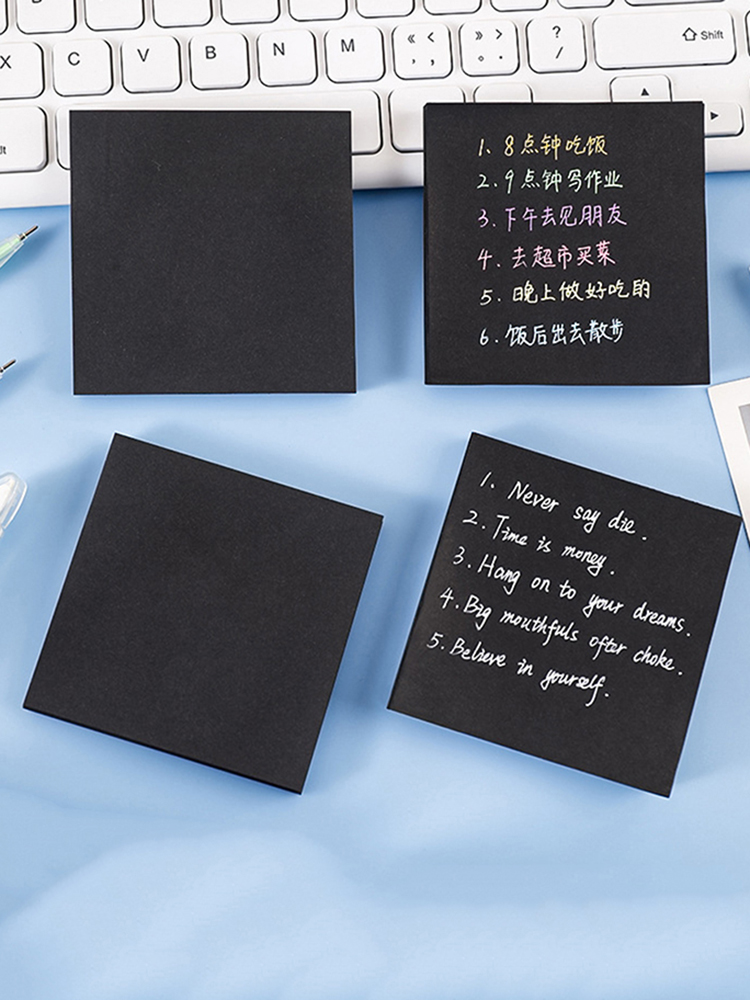 X C V B N M « < , 、 » > 。 . ? / Shift
1、8点钟吃饭
2.9点钟写作业
3.下午去见朋友
4.去超市买菜
5.晚上做好吃的
6.饭后出去散步
1、Never say die.
2.Time is money.
3.Hang on to your dreams.
4.Big mouthfuls ofter choke.
5.Believe in yourself.